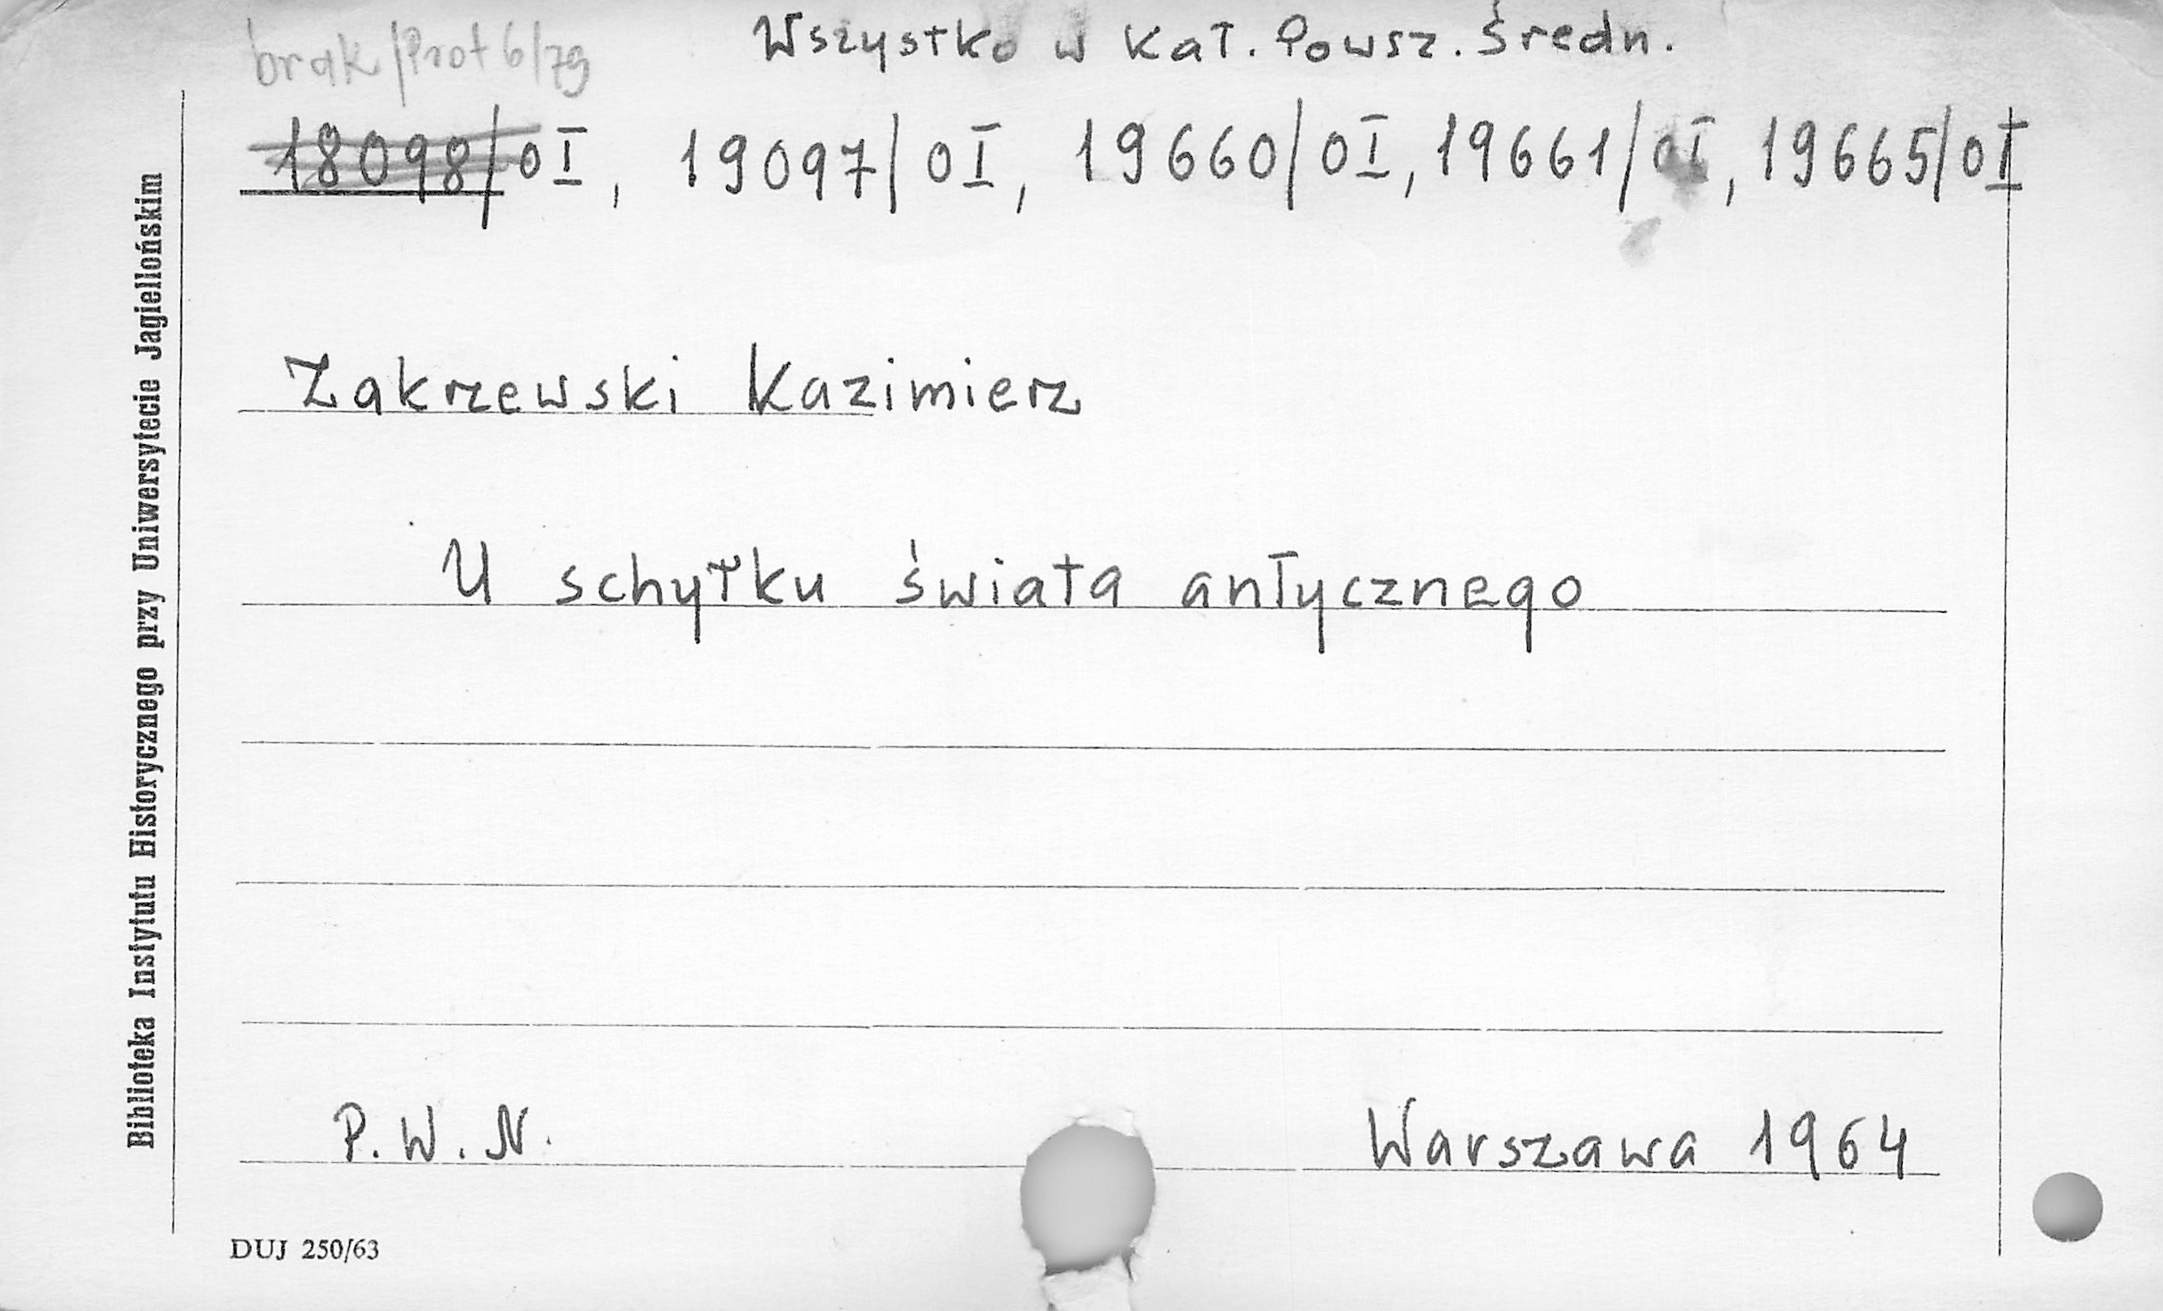 brak/Prot 6/79
Wszystko w kat. Powsz. Średn.
18098/0I, 19097/0I, 19660/0I, 19661/0I, 19665/0I
Zakrzewski Kazimierz
U schyłku świata antycznego
P.W.N. Warszawa 1964
DUJ 250/63
Biblioteka Instytutu Historycznego przy Uniwersytecie Jagiellońskim